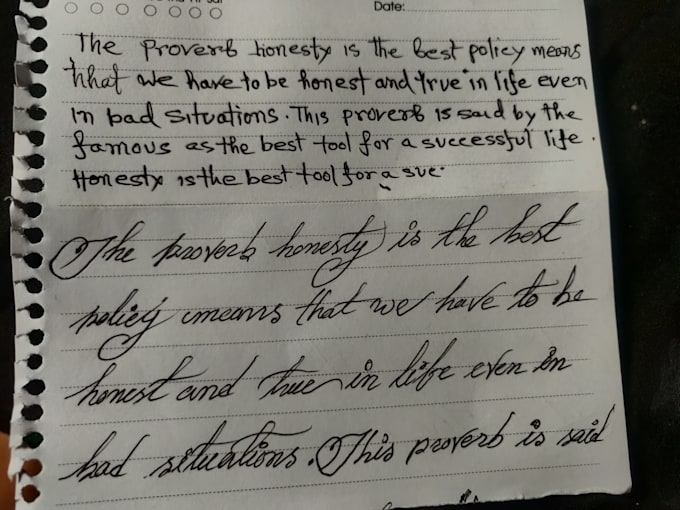 Date:
The Proverb honesty is the best policy means
that we have to be honest and true in life even
in bad situations. This proverb is said by the
famous as the best tool for a successful life.
Honesty is the best tool for a suc.
The proverb honesty is the best
policy means that we have to be
honest and true in life even in
bad situations. This proverb is said